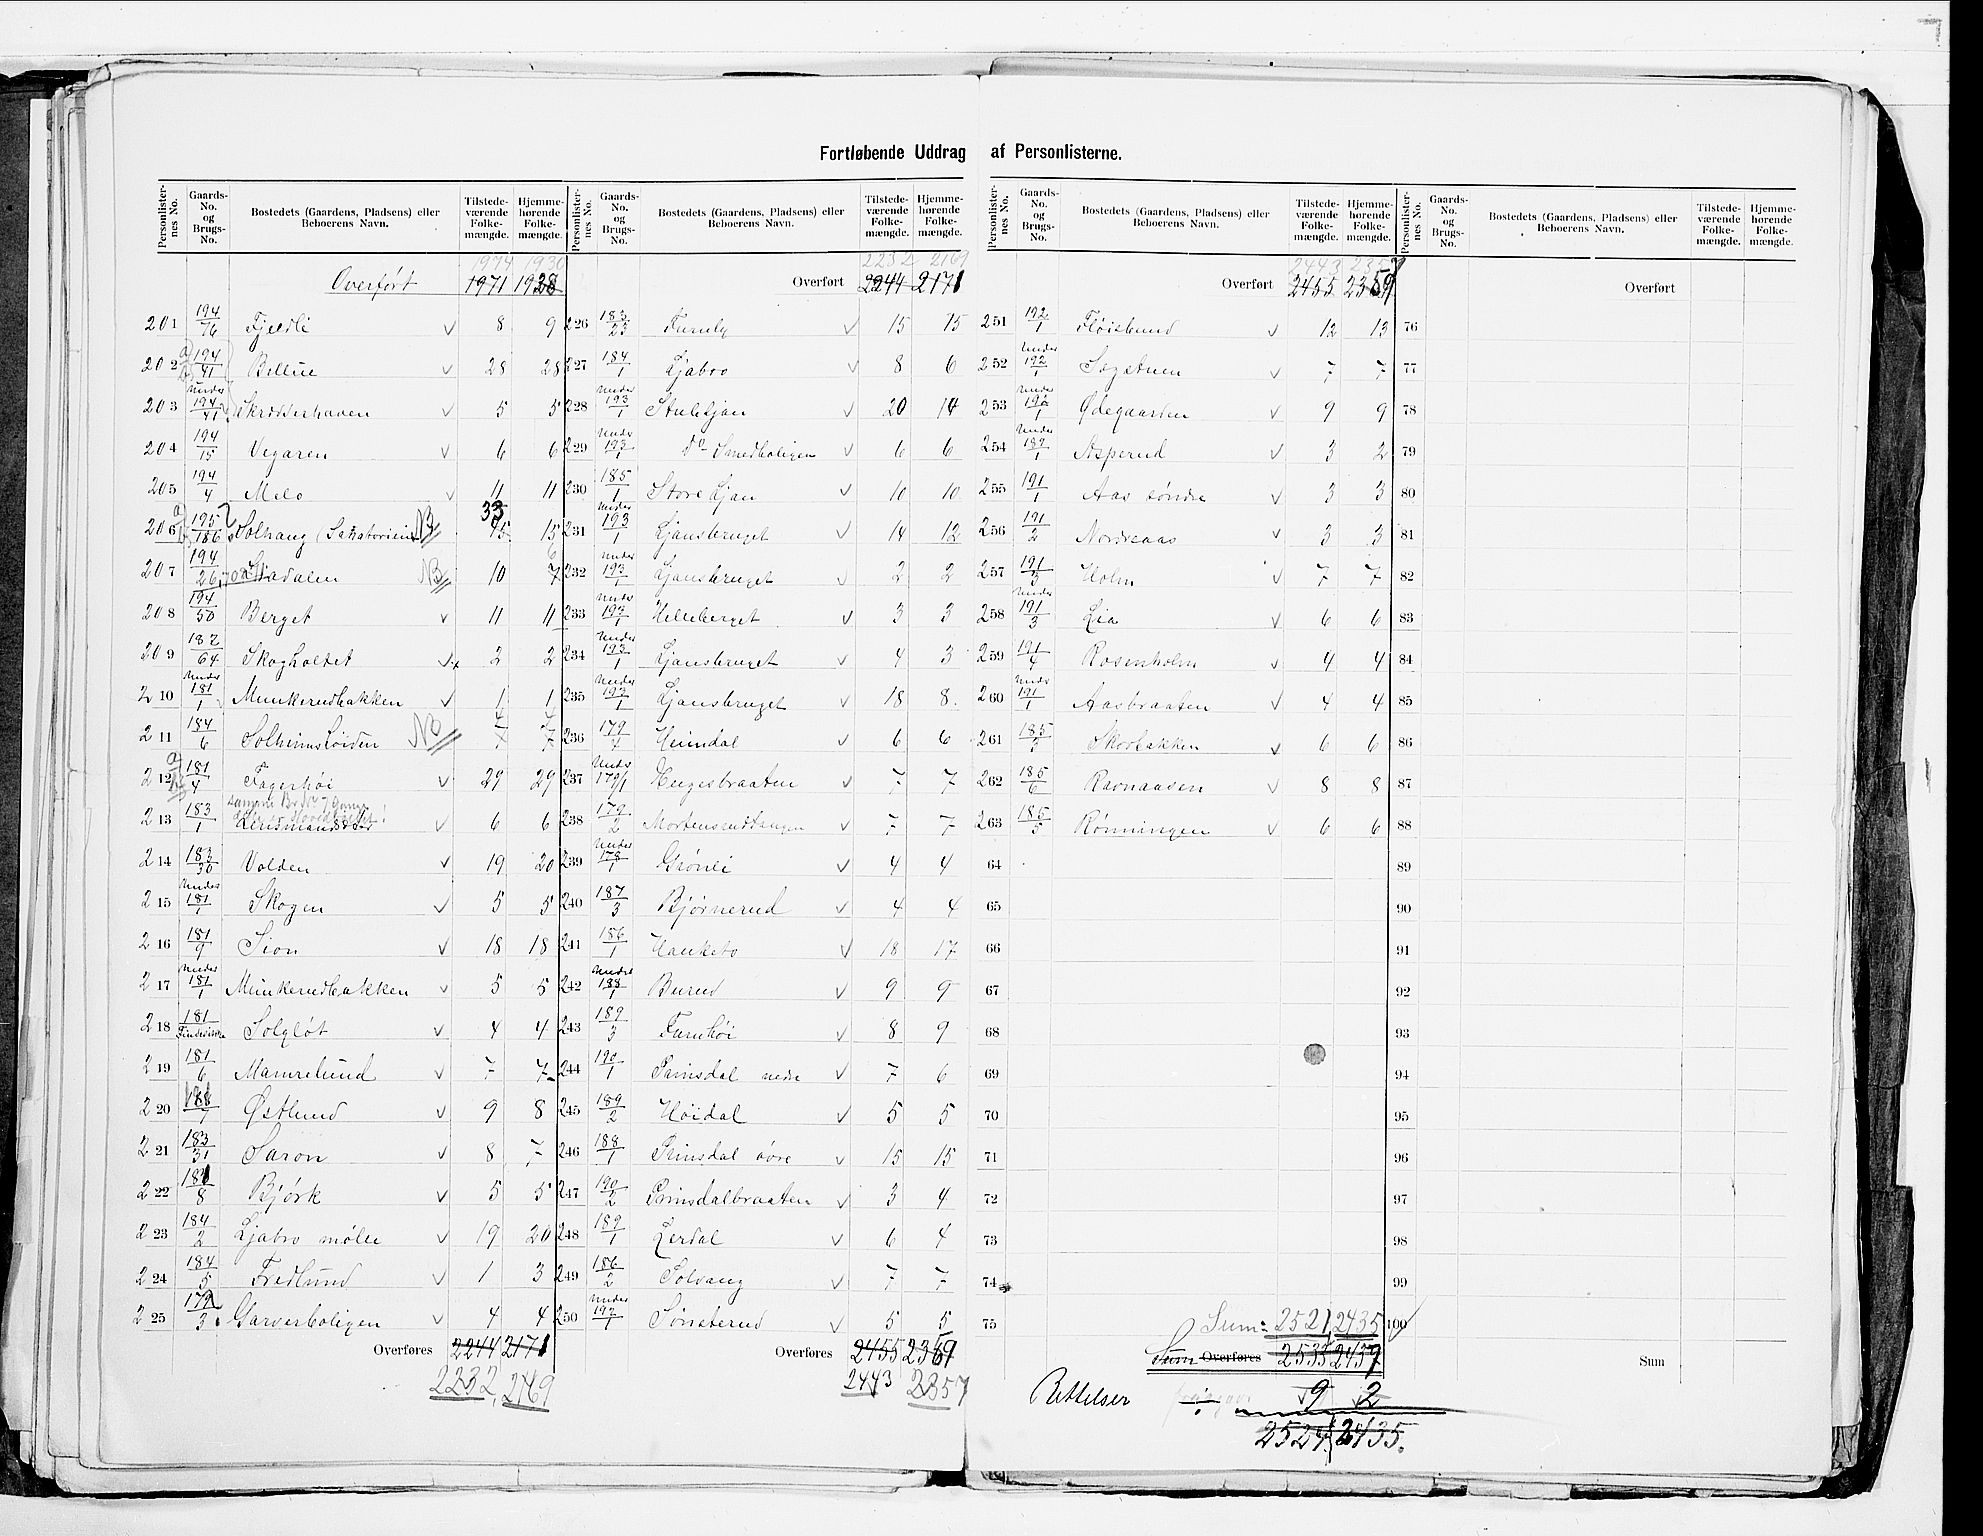 Fortløbende Uddrag af Personlisterne.
Personlister-nes No. Gaards-No. og Brugs-No. Bostedets (Gaardens, Pladsens) eller Beboerens Navn. Tilstede-værende Folke-mængde. Hjemme-hørende Folke-mængde.
1974 1930
Overført 1971 1928
201 194/76 Fjeldli v 8 9
202 194/41 Bellue v 28 28
203 Under 194/41 Skrædderhaven v 5 5
204 194/15 Vegaren v 6 6
205 194/4 Melo v 11 11
206 195/186 Solhaug (Sanatorium) NB 33 15 15
207 194/26 Hadalen NB 10 7 6
208 194/50 Berget v 11 11
209 182/64 Skogholtet v 2 2
210 Under 181/1 Munkerudbakken v 1 1
211 184/6 Solheimshøiden NB 7 7
212 181/4 Fagerhøi v 29 29
213 183/1 v 6 6
214 183/30 Volden v 19 20
215 Under 181/1 Skogen v 5 5
216 181/9 Sion v 18 18
217 Under 181/1 Munkerudbakken v 5 5
218 181 Solgløt v 4 4
219 181/6 Mamrelund v 7 7
220 181/7 Østlund v 9 8
221 183/31 Saron v 8 7
222 181/8 Bjørk v 5 5
223 184/2 Ljabro mølle v 19 20
224 184/5 Fredlund v 1 3
225 179/3 Garverboligen v 4 4
Overføres 2244 2171
2232, 2169
Personlister-nes No. Gaards-No. og Brugs-No. Bostedets (Gaardens, Pladsens) eller Beboerens Navn. Tilstede-værende Folke-mængde. Hjemme-hørende Folke-mængde.
2232 2169
Overført 2244 2171
226 183/23 Furuly v 15 15
227 184/1 Ljabro v 8 6
228 Under 193/1 Stubljan v 20 14
229 Under 193/1 do Smedboligen v 6 6
230 185/1 Store Ljan v 10 10
231 Under 193/1 Ljansbruget v 14 12
232 Under 193/1 Ljansbruget v 2 2
233 Under 193/1 Helleberget v 3 3
234 Under 193/1 Ljansbruget v 4 3
235 Under 193/1 Ljansbruget v 18 8
236 179/4 Heimdal v 6 6
237 Under 179/1 Hergesbraaten v 7 7
238 179/2 Mortensrudtangen v 7 7
239 Under 178/1 Grønli v 4 4
240 187/3 Bjørnerud v 4 4
241 186/1 Hauketo v 18 17
242 Under 188/1 Burud v 9 9
243 189/3 Furuhøi v 8 9
244 190/1 Prinsdal nedre v 7 6
245 189/2 Høidal v 5 5
246 188/1 Prinsdal øvre v 15 15
247 190/2 Prinsdalbraaten v 3 4
248 189/1 Lerdal v 6 4
249 186/2 Solvang v 7 7
250 Under 192/1 Sønsterud v 5 5
Overføres 2455 2359
2443 2357
Personlister-nes No. Gaards-No. og Brugs-No. Bostedets (Gaardens, Pladsens) eller Beboerens Navn. Tilstede-værende Folke-mængde. Hjemme-hørende Folke-mængde.
2443 2357
Overført 2455 2359
251 192/1 Fløisbund v 12 13
252 Under 192/1 Sagstuen v 7 7
253 Under 192/1 Ødegaarden v 9 9
254 Under 189/1 Asperud v 3 2
255 191/1 Aas søndre v 3 3
256 191/2 Nordreaas v 3 3
257 191/3 Holm v 7 7
258 Under 191/3 Lia v 6 6
259 191/4 Rosenholm v 4 4
260 Under 191/1 Aasbraaten v 4 4
261 185/7 Skovbakken v 6 6
262 185/6 Ravnaasen v 8 8
263 185/5 Rønningen v 6 6
64
65
66
67
68
69
70
71
72
73
74
75
Sum: 2521 2435
Sum Overføres 2533 2437
Rettelser 9 2
2524 2435.
Personlister-nes No. Gaards-No. og Brugs-No. Bostedets (Gaardens, Pladsens) eller Beboerens Navn. Tilstede-værende Folke-mængde. Hjemme-hørende Folke-mængde.
Overført
76
77
78
79
80
81
82
83
84
85
86
87
88
89
90
91
92
93
94
95
96
97
98
99
100
Sum